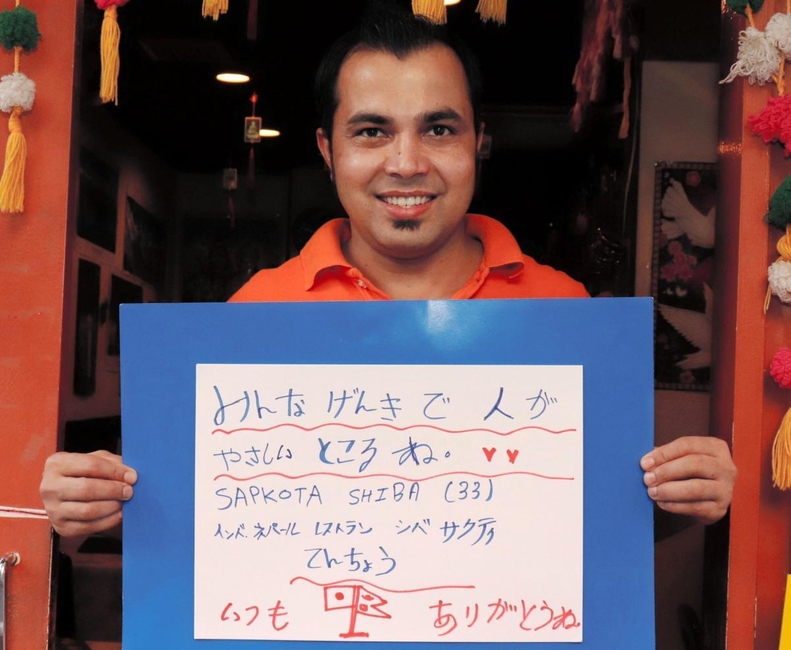 みんな げんき で 人 が
やさしい ところ ね。
SAPKOTA SHIBA (33)
インド.ネパール レストラン シバ サクティ
てんちょう
いつも ありがとうね。